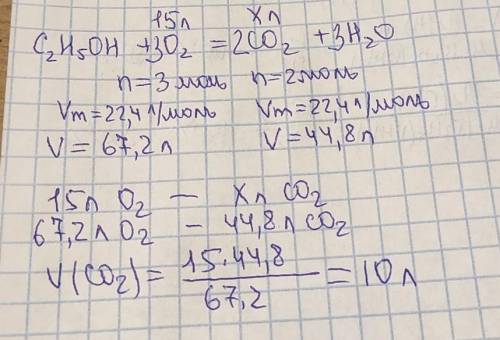 15л Xл
C₂H₅OH +3O₂ =2CO₂ +3H₂O
n=3 моль n=2моль
Vm=22,4 л/моль Vm=22,4 л/моль
V= 67,2л V=44,8л
15л O₂ — Xл CO₂
67,2л O₂ - 44,8л CO₂
V(CO₂)= 15·44,8/67,2 =10л